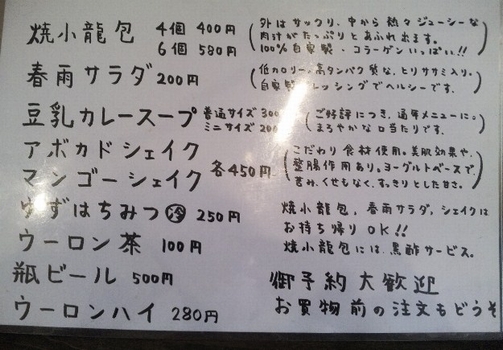 焼小龍包 4個 400円
6個 580円
外はサックリ、中から熱々ジューシーな
肉汁がたっぷりとあふれ出ます。
100%自家製・コラーゲンいっぱい!!
春雨サラダ 200円
低カロリー、高タンパク質な、とりササミ入り。
自家製ドレッシングでヘルシーです。
豆乳カレースープ 普通サイズ 300
ミニサイズ 200
ご好評につき、通年メニューに。
まろやかな口当たりです。
アボカドシェイク
マンゴーシェイク
各450円
こだわり食材使用。美肌効果や、
整腸作用あり。ヨーグルトベースで
苦み、くせもなく、すっきりとした甘さ。
ゆずはちみつ 冷 250円
ウーロン茶 100円
瓶ビール 500円
ウーロンハイ 280円
焼小龍包、春雨サラダ、シェイクは
お持ち帰りOK!!
焼小龍包には、黒酢サービス。
御予約大歓迎
お買物前の注文もどうぞ